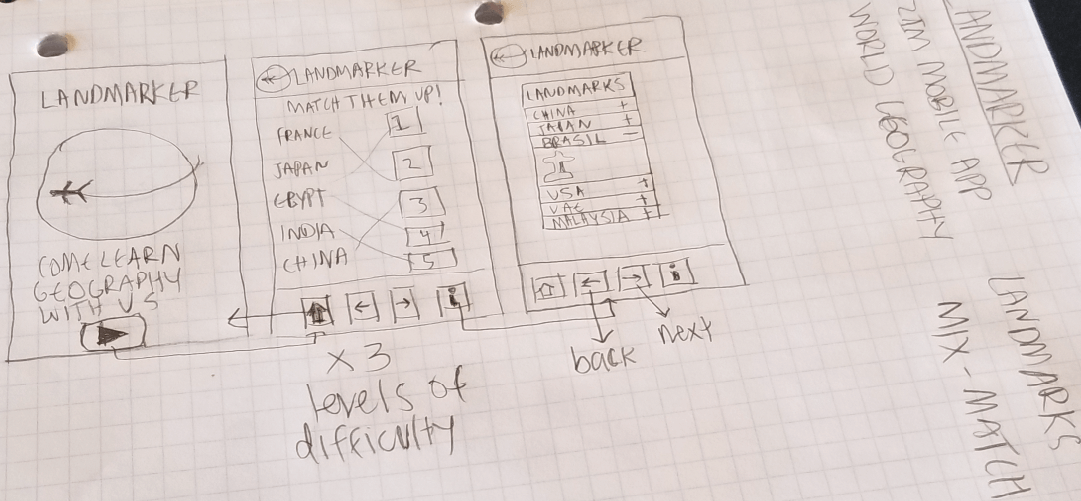 LANDMARKER
COME LEARN
GEOGRAPHY
WITH US
LANDMARKER
MATCH THEM UP!
FRANCE
1
JAPAN
2
EGYPT
3
INDIA
4
CHINA
5
i
x 3
levels of
difficulty
LANDMARKER
LANDMARKS
CHINA +
JAPAN +
BRASIL -
USA +
UAE +
MALAYSIA +
i
back
next
LANDMARKER
ZIM MOBILE APP
WORLD GEOGRAPHY
LANDMARKS
MIX-MATCH